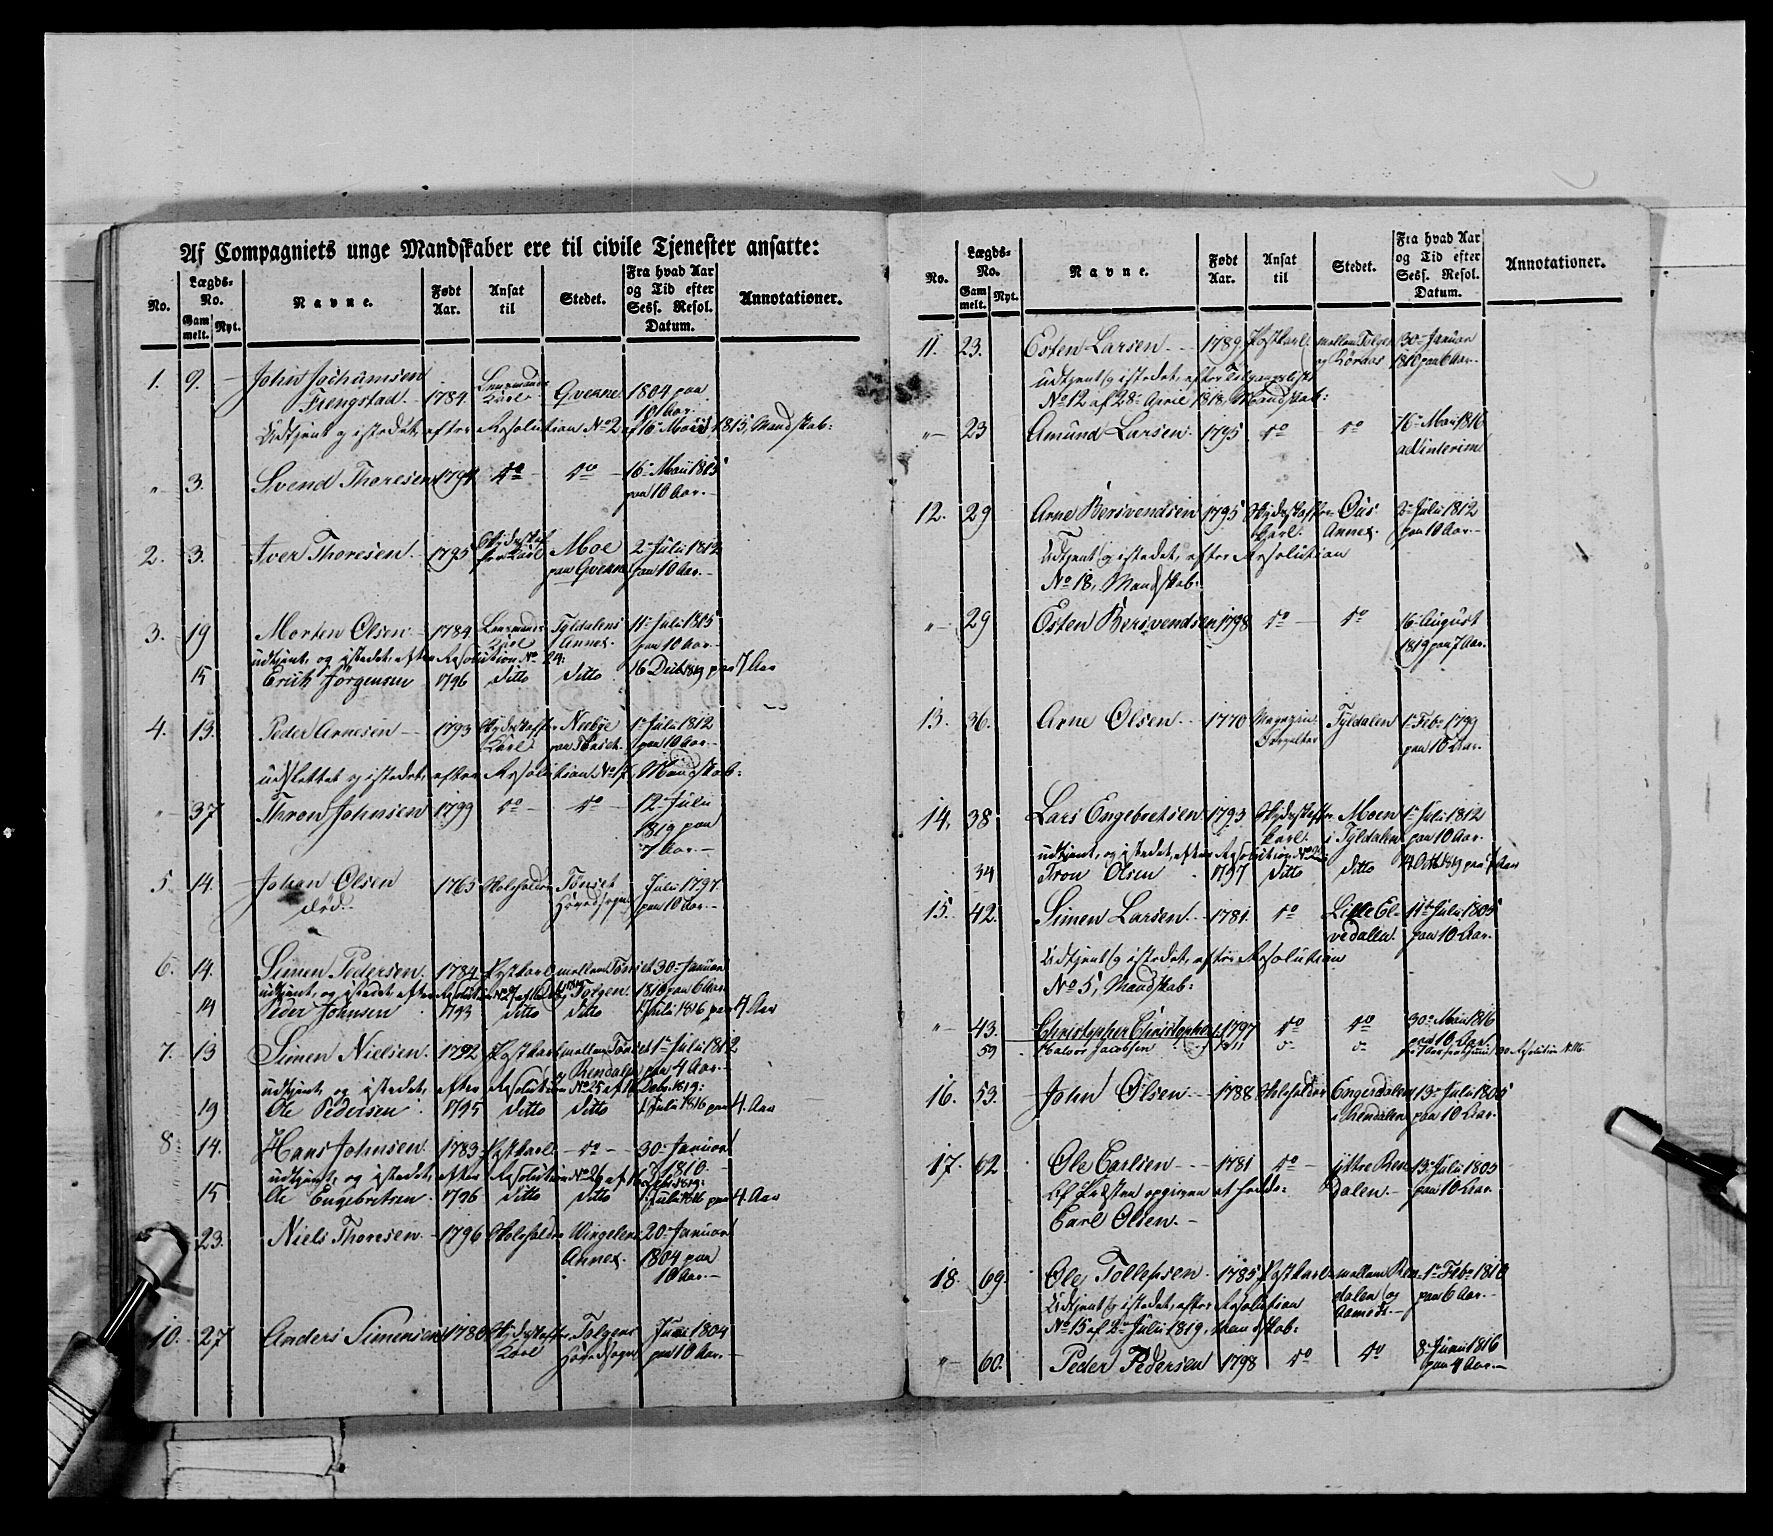 Af Compagniets unge Mandskaber ere til civile Tjenester ansatte:
No. Lægds- No. Gammelt. Nyt. Navne. Født Aar. Ansat til Stedet. Fra hvad Aar og Tid efter Sess. Resol. Datum. Annotationer.
1. 9. John Jochumsen
Frengstad 1784. Lensmands Karl Qvekne 1804 paa
10 Aar.
Udtjent og istedet, efter Resolution No 2 af 16 Maii 1815, Mandskab:
"— 3. Svend Thoresen 1794 do do 16 Maii 1815
paa 10 Aar.
2. 3. Iver Thoresen 1795 Skydsskaffer Karl Moe 2 Julii 1812
paa Qvekne paa 10 Aar.
3. 19 Morten Olsen 1784 Lensmands Karl Tyldalens Annex. 11 Julii 1805
paa 10 Aar.
udtjent, og istedet, efter Resolution No 24:
15 Erich Jørgensen 1796 ditto ditto 16 Decbr 1819 paa 7 Aar
4. 13. Peder Arnesen 1793 Skydsskaffer Karl Neebye 1 Julii 1812
paa Tønset. paa 10 Aar.
udslettet og istedet, efter Resolution No 17, Mandskab:
" 37 Thron Johnsen 1799 do do 12 Julii
1819 paa
7 Aar.
5. 14. Johan Olsen 1765 Holsfolder Tønset Julii 1797.
død. Hovedsogn paa 10 Aar.
6. 14. Simen Pedersen. 1784 Postkarl mellem Tønset 30 Januar
og Tolgen. 1810 paa 6 Aar
udtjent, og istedet, efter Resolution No 27
14 Peder Johnsen 1793 ditto ditto 1 Julii 1816 paa 4 Aar
7. 13 Simen Nielsen. 1792 Postkarl mellem Tønset 1 Julii 1812
og Rendalen paa 4 Aar.
udtjent, og istedet, efter Resolution No 25 af 16 Decbr 1819:
19 Ole Pedersen 1795 ditto ditto 1 Julii 1816 paa 4. Aar
8 14. Hans Johnsen 1783 Postkarl do 30 Januar
1810.
udtjent, og istedet, efter Resolution No 26 af 16 Decbr 1819:
15 Ole Engebretsen 1796 ditto ditto 1 Julii 1816 paa 4. Aar
23. Niels Thoresen 1796 Wingelens 20 Januar
Annex. 1804 paa
10 Aar.
10. 27 Anders Simensen 1780 Skydsskaffer Karl Tolgens Junii 1804
Hovedsogn paa 10 Aar.
No. Lægds- No. Gammelt. Nyt. Navne. Født Aar. Ansat til Stedet. Fra hvad Aar og Tid efter Sess. Resol. Datum. Annotationer.
11. 23. Esten Larsen 1789 Postkarl mellem Tolgen 30 Januar
og Røraas 1810 paa 6 Aar.
udtjent og istedet, efter Tilgangsliste
No 12 af 28 April 1818, Mandskab:
"— 23 Amund Larsen 1795 do do 16 Maii 1816
ad interim
12. 29 Arne Bersvendsen 1795 Skydsskaffer Karl. Ous Annex. 2 Julii 1812
paa 10 Aar.
Udtjent og istedet, efter Resolution
No 18, Mandskab:
"— 29 Esten Bersvendsen 1798 do do 16 August
1819 paa 7 Aar.
13. 36. Arne Olsen 1770 Magazin Forvalter Tyldalen 1 Feb. 1799
paa 10 Aar.
14. 38 Lars Engebretsen 1793 Skydsskaffer Karl. Moen 1 Julii 1812
i Tyldalen paa 10 Aar.
udtjent, og istedet, efter Resolution
34 Tron Olsen 1797 ditto ditto 14 Octb 1819 paa 7 Aar
15. 42. Simen Larsen 1781 do Lille El- 11 Julii 1805
vedalen. paa 10 Aar.
Udtjent og istedet, efter Resolution
No 5, Mandskab:
"— 43. Christopher Christophers. 1797 do do 30 Maii 1816
paa 10 Aar
59 Halvor Jacobsen
16. 53. John Olsen 1788 Holsfolder Engerdalen 13 Julii 1805
i Rendalen paa 10 Aar.
17. 62 Ole Carlsen 1781 do Yttre Ren- 13 Julii 1805
dalen. paa 10 Aar.
Af Præsten opgiven at hedde:
Carl Olsen.
18. 69. Ole Tollefsen 1785 Postkarl mellem Ren- 1 Feb. 1810
dalen og paa 6 Aar.
Aamodt.
Udtjent og istedet, efter Resolution
No 15 af 2 Julii 1819, Mandskab:
"— 60. Peder Pedersen 1798 do do 8 Junii 1816
paa 4 Aar.